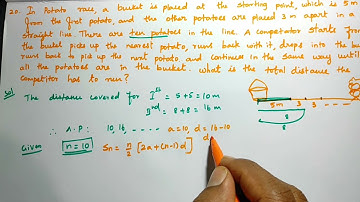 20. In Potato race, a bucket is placed at the starting point, which is 5 m
from the first potato, and the other potatoes are placed 3 m apart in a
straight line. There are ten potatoes in the line. A competator starts from
the bucket pick up the nearest potato, runs back with it, drops into the bu
runs back to pick up the next potato, and continues in the same way until
all the potatoes are in the bucket. What is the total distance the
competitor has to run?
Sol The distance covered for Ist = 5+5 = 10 m
IInd = 8+8 = 16 m
5m 3 3
8
8
∴ A.P: 10, 16, ..... a = 10, d = 16-10
d
Given n = 10 Sn = n/2 [2a+(n-1)d]